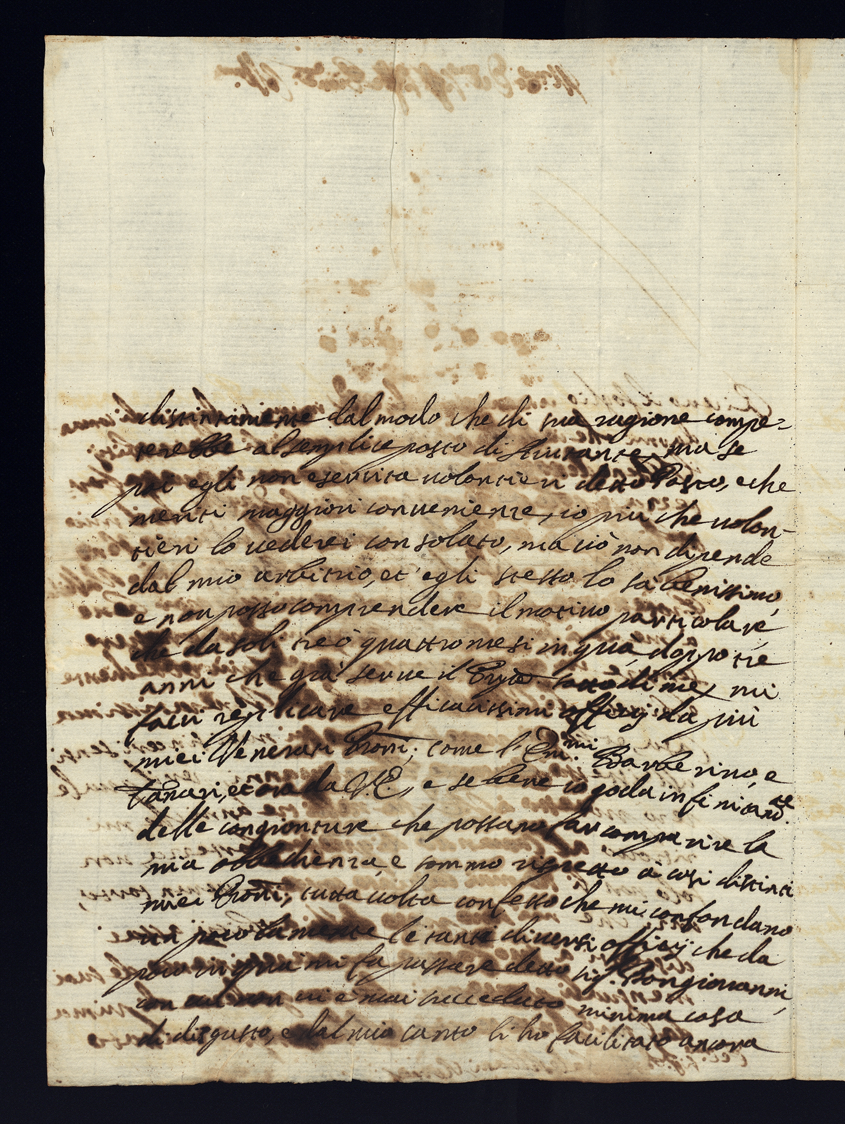 distintamente dal modo che di sua ragione compe-
terebbe al semplice posto di Aiutante, ma se
poi egli non esercita volontieri detto Posto, e che
meriti maggiori convenienze, io più che volon-
tieri lo vederei consolato, ma ciò non dipende
dal mio arbitrio, et egli stesso lo sà benissimo,
e non posso comprendere il motivo particolare
che da soli tre ò quattro mesi in quà, doppo trè
anni che già serve il sotto di me, mi
facci replicare efficacissimi officij da più
miei Venerati Proni, come l'Em.mi Barberino, e
Tanari, et ora da V.E., e se bene io goda infinitam.te
delle congionture che possano far comparire la
mia obbedienza, e sommo rispetto à così distinti
miei Proni, tutta volta confesso che mi confondano
un poco la mente le tante diversi officij che da
poco in qua mi fa passare detto Sig. Bongiovanni,
con cui non vi è mai succeduto minima cosa
di disgusto, e dal mio canto li ho facilitato ancora